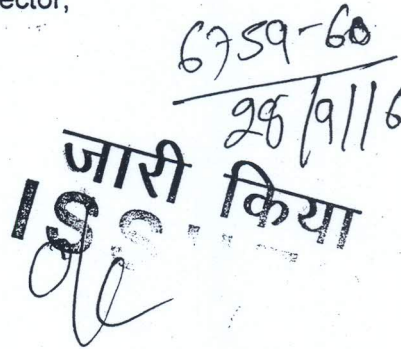 ector,
6759-60
28/9/16
जारी किया
ISS